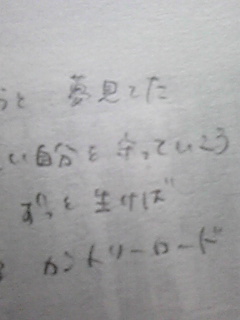 うと 夢見てた
い自分を守っていこう
ずっと生けば
カントリーロード